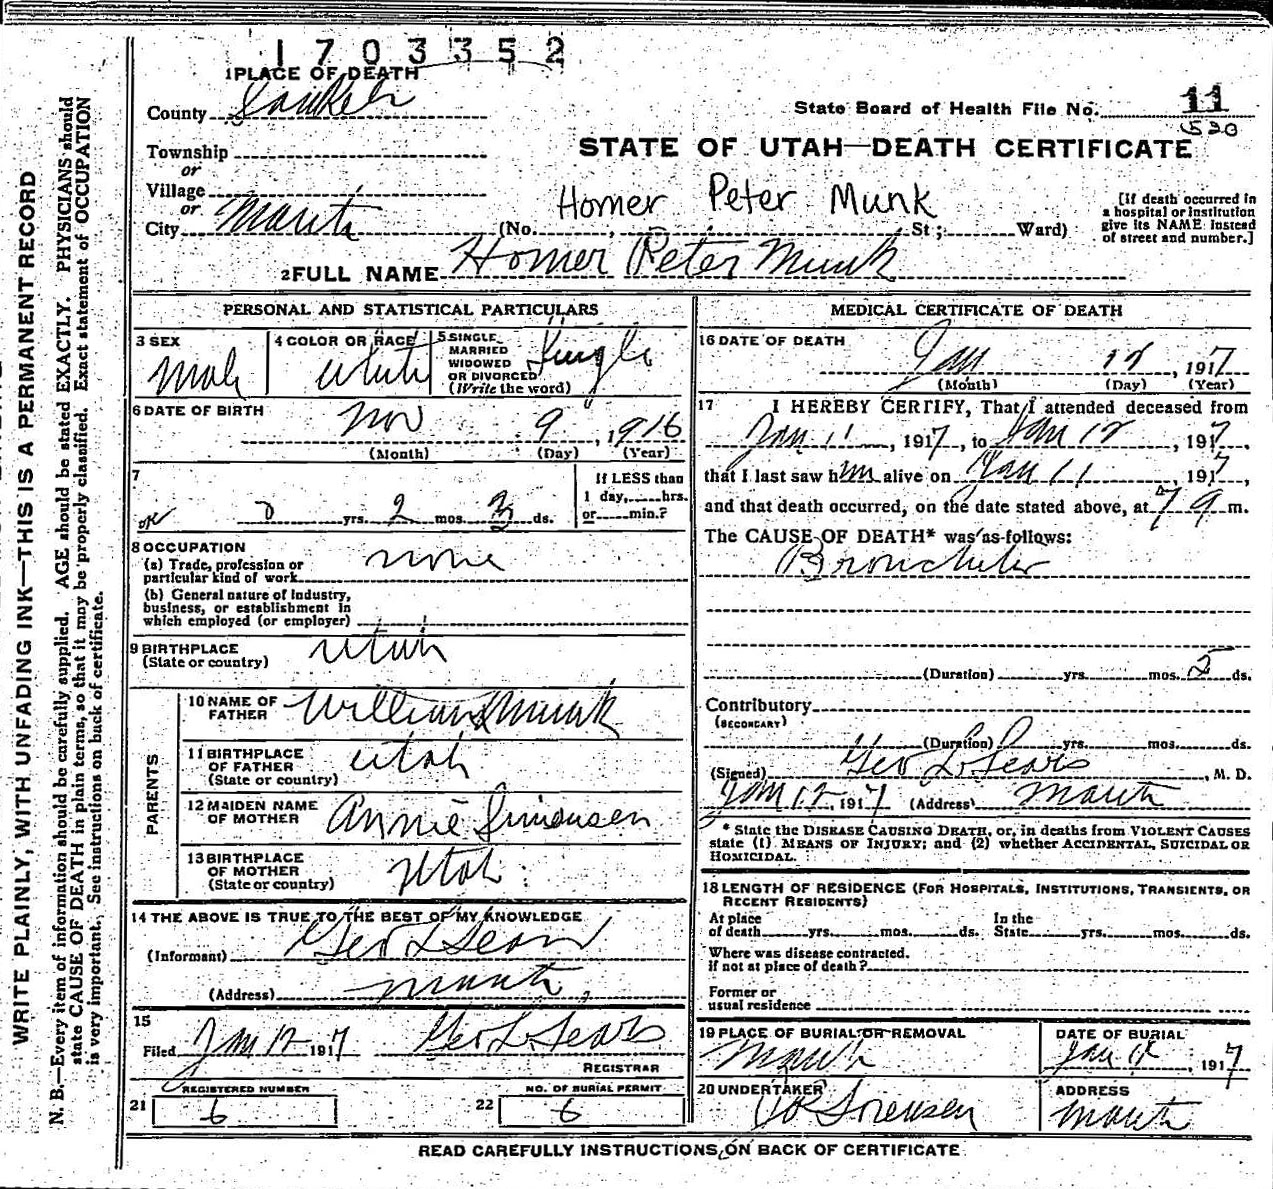 1703352
1 PLACE OF DEATH
County Sanpete
State Board of Health File No. 11
530
Township
or
Village
or
City Manti
STATE OF UTAH—DEATH CERTIFICATE
Homer Peter Munk
(No. , St; Ward)
[If death occurred in
a hospital or institution
give its NAME instead
of street and number.]
2 FULL NAME Homer Peter Munk
PERSONAL AND STATISTICAL PARTICULARS
3 SEX
Male
4 COLOR OR RACE
White
5 SINGLE
MARRIED
WIDOWED
OR DIVORCED
(Write the word)
Single
6 DATE OF BIRTH
Nov 9, 1916
(Month) (Day) (Year)
7
0 yrs. 2 mos. 3 ds.
If LESS than
1 day, hrs.
or min.?
8 OCCUPATION
(a) Trade, profession or
particular kind of work
none
(b) General nature of industry,
business, or establishment in
which employed (or employer)
9 BIRTHPLACE
(State or country)
Utah
PARENTS
10 NAME OF
FATHER
William Munk
11 BIRTHPLACE
OF FATHER
(State or country)
Utah
12 MAIDEN NAME
OF MOTHER
Annie Simonsen
13 BIRTHPLACE
OF MOTHER
(State or country)
Utah
14 THE ABOVE IS TRUE TO THE BEST OF MY KNOWLEDGE
(Informant) Geo L Sears
(Address) Manti
15
Filed Jan 12 1917 Geo L. Sears
REGISTRAR
REGISTERED NUMBER
21 6
NO. OF BURIAL PERMIT
22 6
MEDICAL CERTIFICATE OF DEATH
16 DATE OF DEATH
Jan 12, 1917
(Month) (Day) (Year)
17 I HEREBY CERTIFY, That I attended deceased from
Jan 11, 1917, to Jan 12, 1917,
that I last saw him alive on Jan 11, 1917,
and that death occurred, on the date stated above, at 7 a m.
The CAUSE OF DEATH* was as follows:
Bronchitis
(Duration) yrs. mos. 5 ds.
Contributory
(SECONDARY)
(Duration) yrs. mos. ds.
(Signed) Geo L. Sears, M. D.
Jan 12, 1917 (Address) Manti
* State the DISEASE CAUSING DEATH, or, in deaths from VIOLENT CAUSES
state (1) MEANS OF INJURY; and (2) whether ACCIDENTAL, SUICIDAL OR
HOMICIDAL.
18 LENGTH OF RESIDENCE (FOR HOSPITALS, INSTITUTIONS, TRANSIENTS, OR
RECENT RESIDENTS)
At place
of death yrs. mos. ds.
In the
State yrs. mos. ds.
Where was disease contracted.
if not at place of death?
Former or
usual residence
19 PLACE OF BURIAL OR REMOVAL
Manti
DATE OF BURIAL
Jan 12, 1917
20 UNDERTAKER
Sorensen
ADDRESS
Manti
READ CAREFULLY INSTRUCTIONS ON BACK OF CERTIFICATE
WRITE PLAINLY, WITH UNFADING INK—THIS IS A PERMANENT RECORD
N. B.—Every item of information should be carefully supplied. AGE should be stated EXACTLY. PHYSICIANS should
state CAUSE OF DEATH in plain terms, so that it may be properly classified. Exact statement of OCCUPATION
is very important. See instructions on back of certificate.